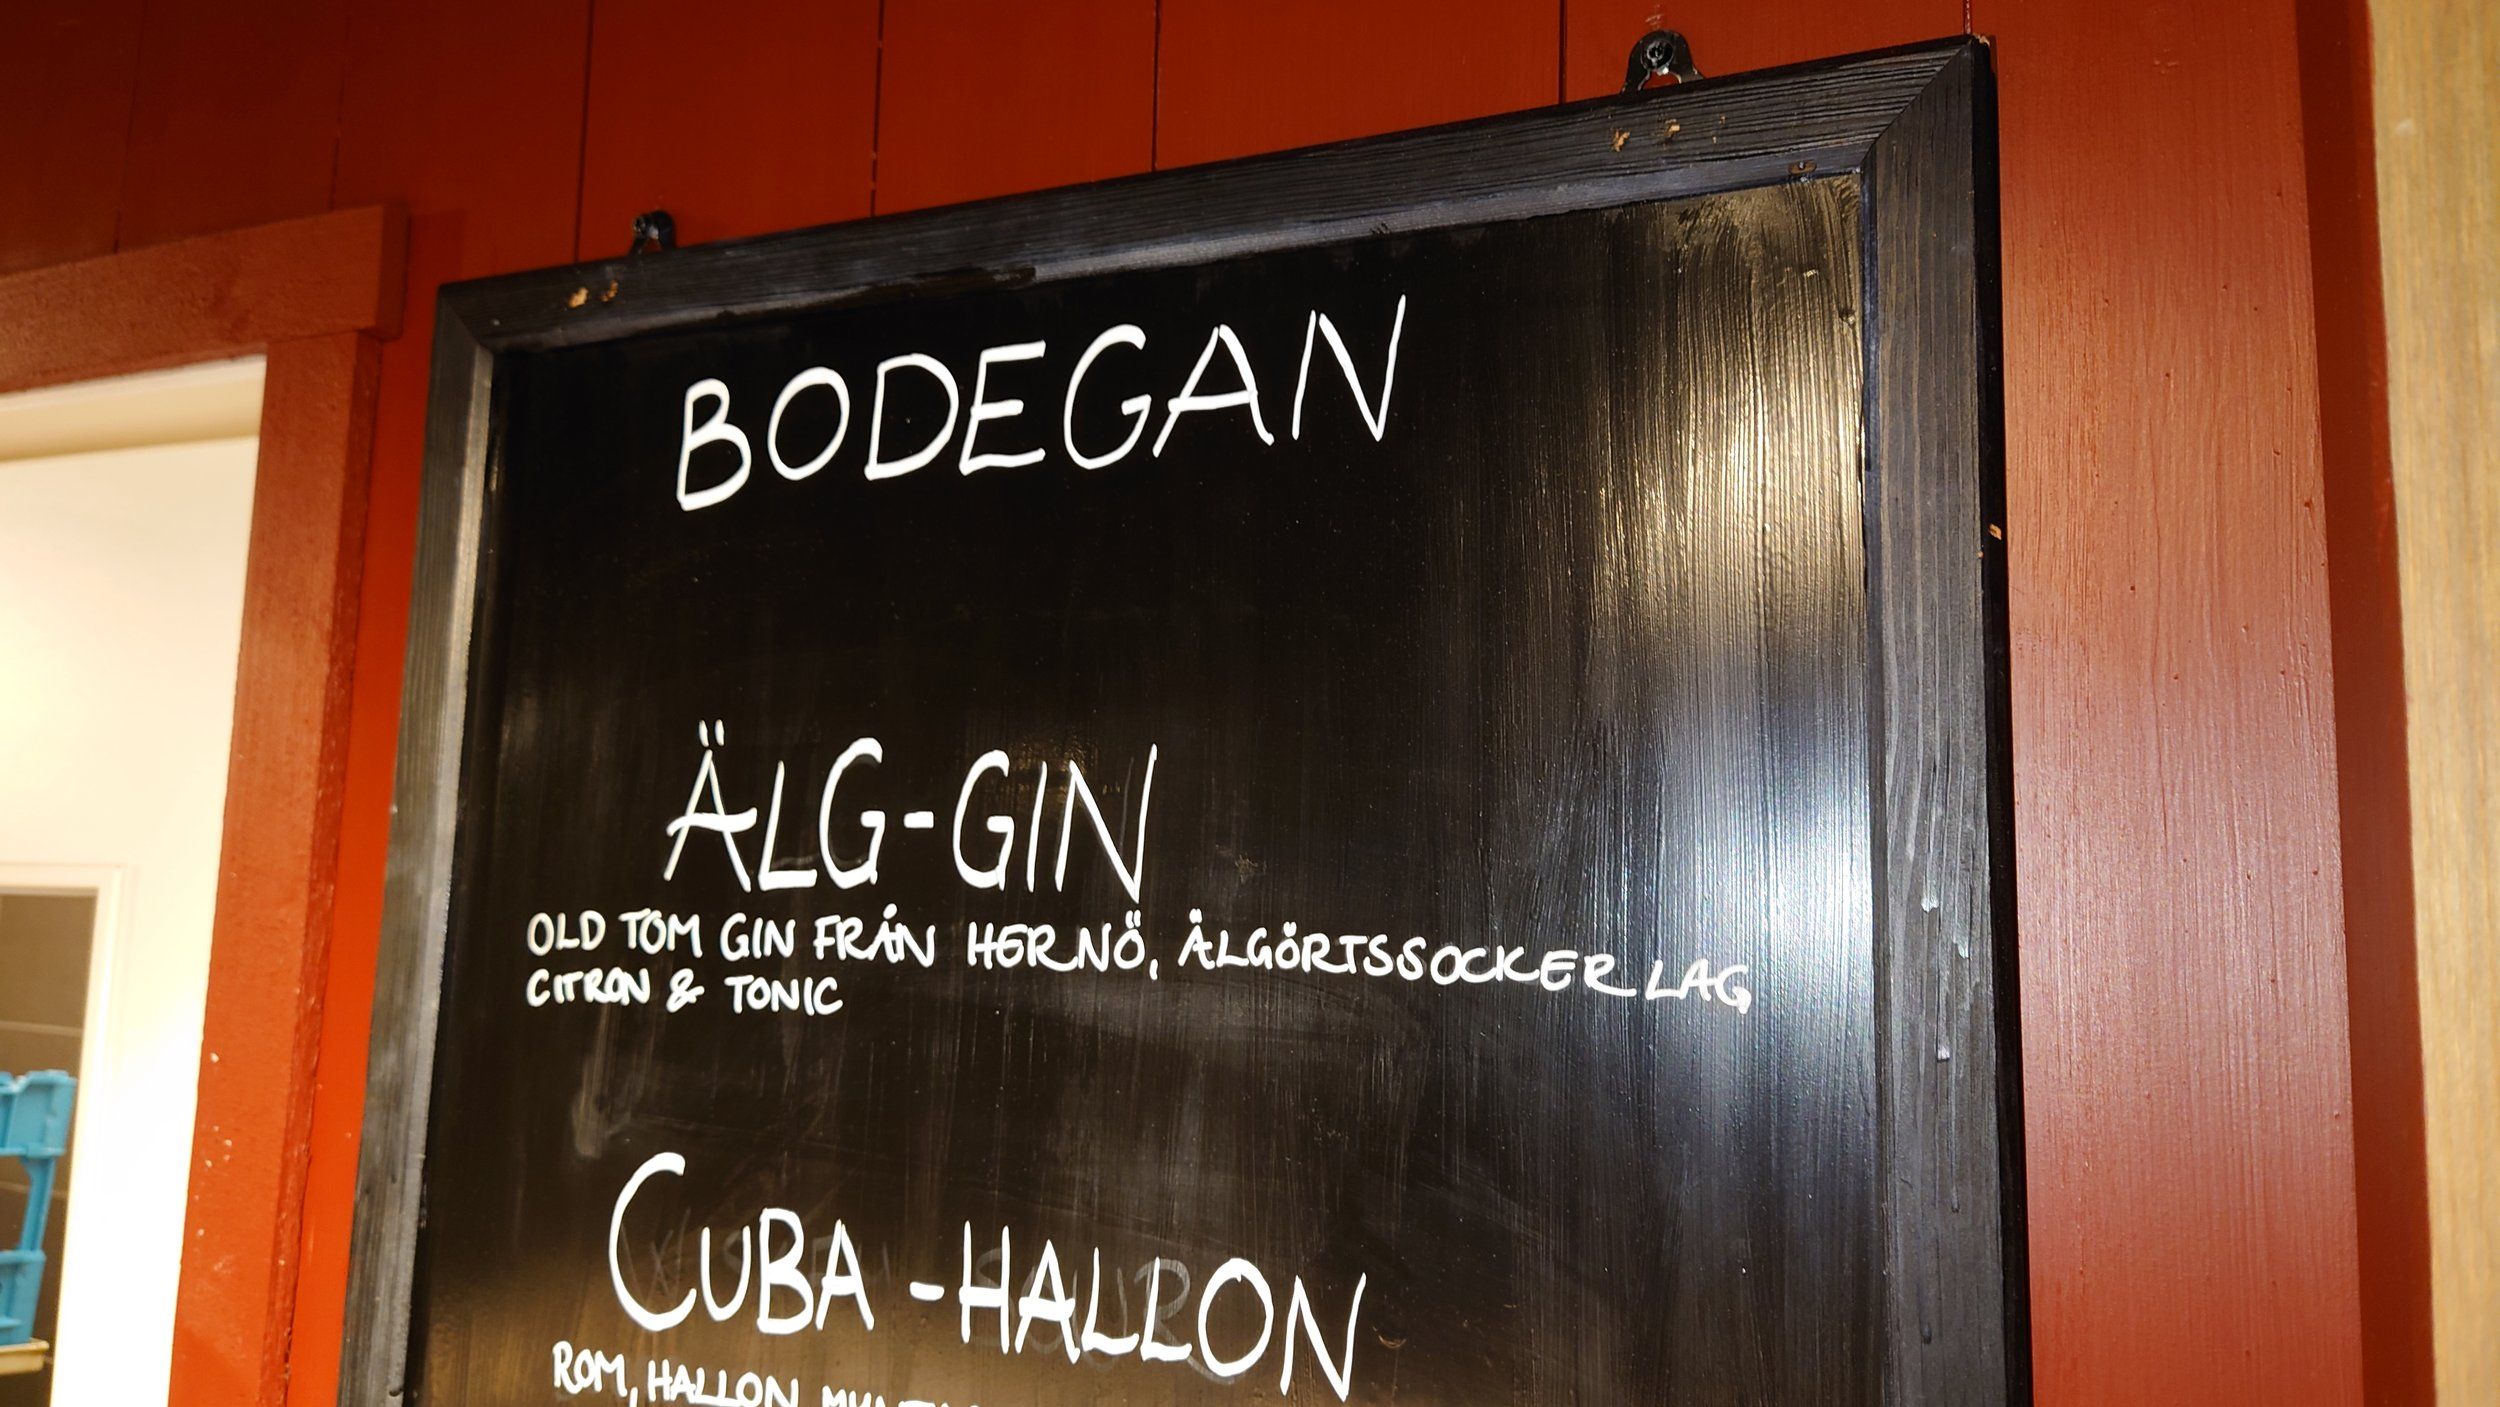 BODEGAN
ÄLG-GIN
OLD TOM GIN FRÅN HERNÖ, ÄLGÖRTSSOCKERLAG
CITRON & TONIC
CUBA-HALLON
ROM, HALLON